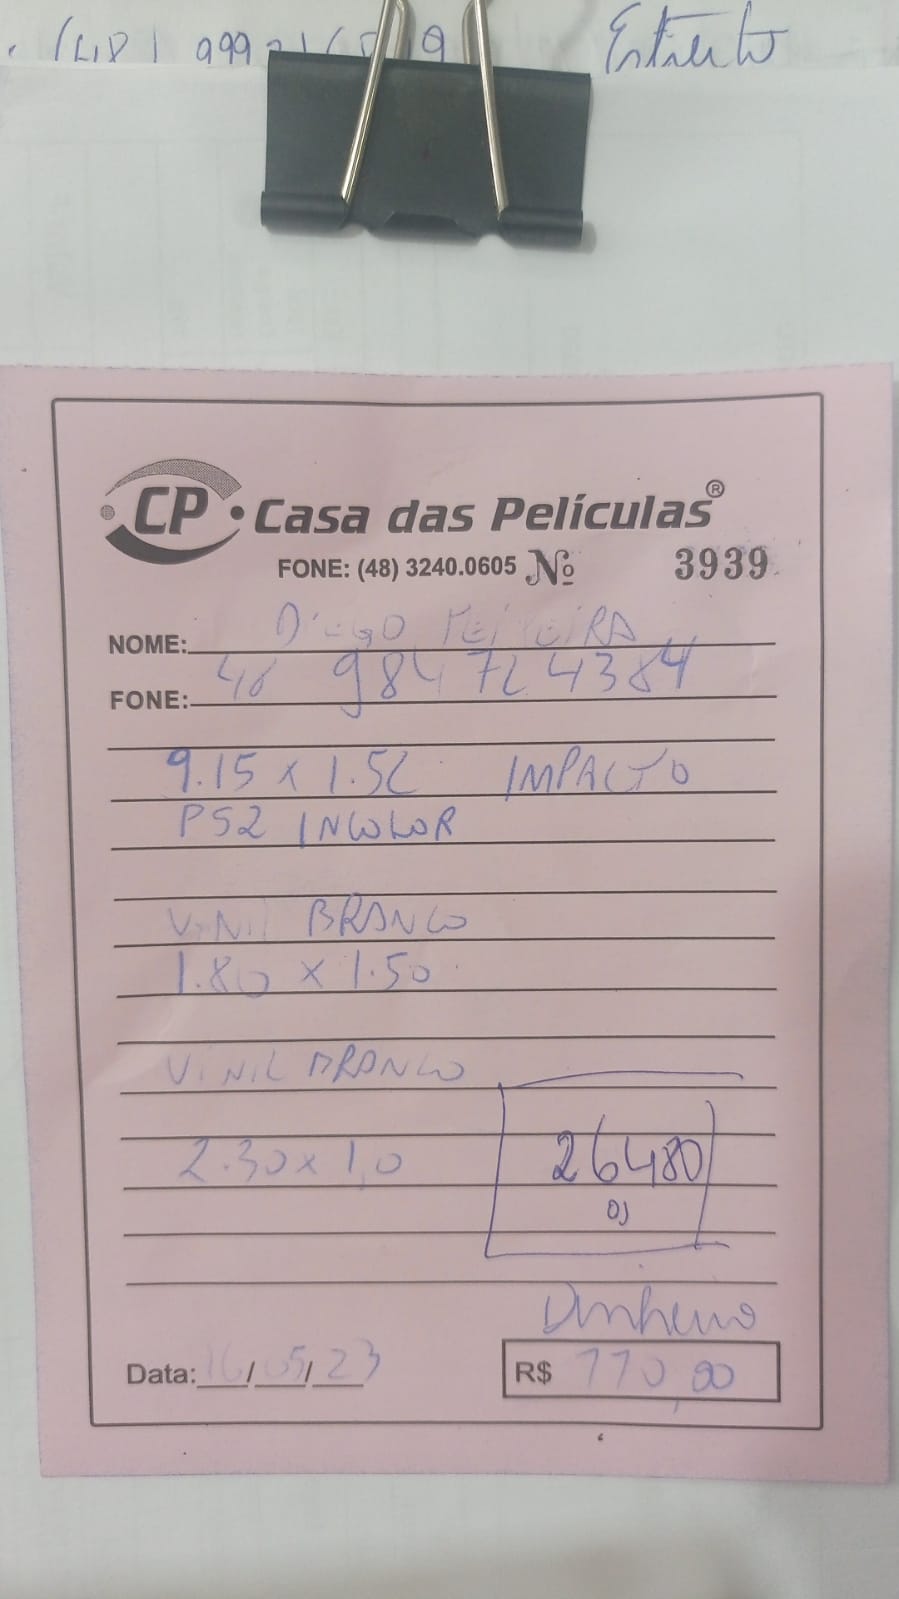 (48) 999
CP. Casa das Películas®
FONE: (48) 3240.0605 Nº 3939
NOME: DIEGO PEREIRA
FONE: 48 984724384
9.15 x 1.52 IMPACTO
PS2 INCOLOR
VINIL BRANCO
1.80 x 1.50
VINIL BRANCO
2.30 x 1,0
26480
Dinheiro
Data: 16/05/23 R$ 770,00